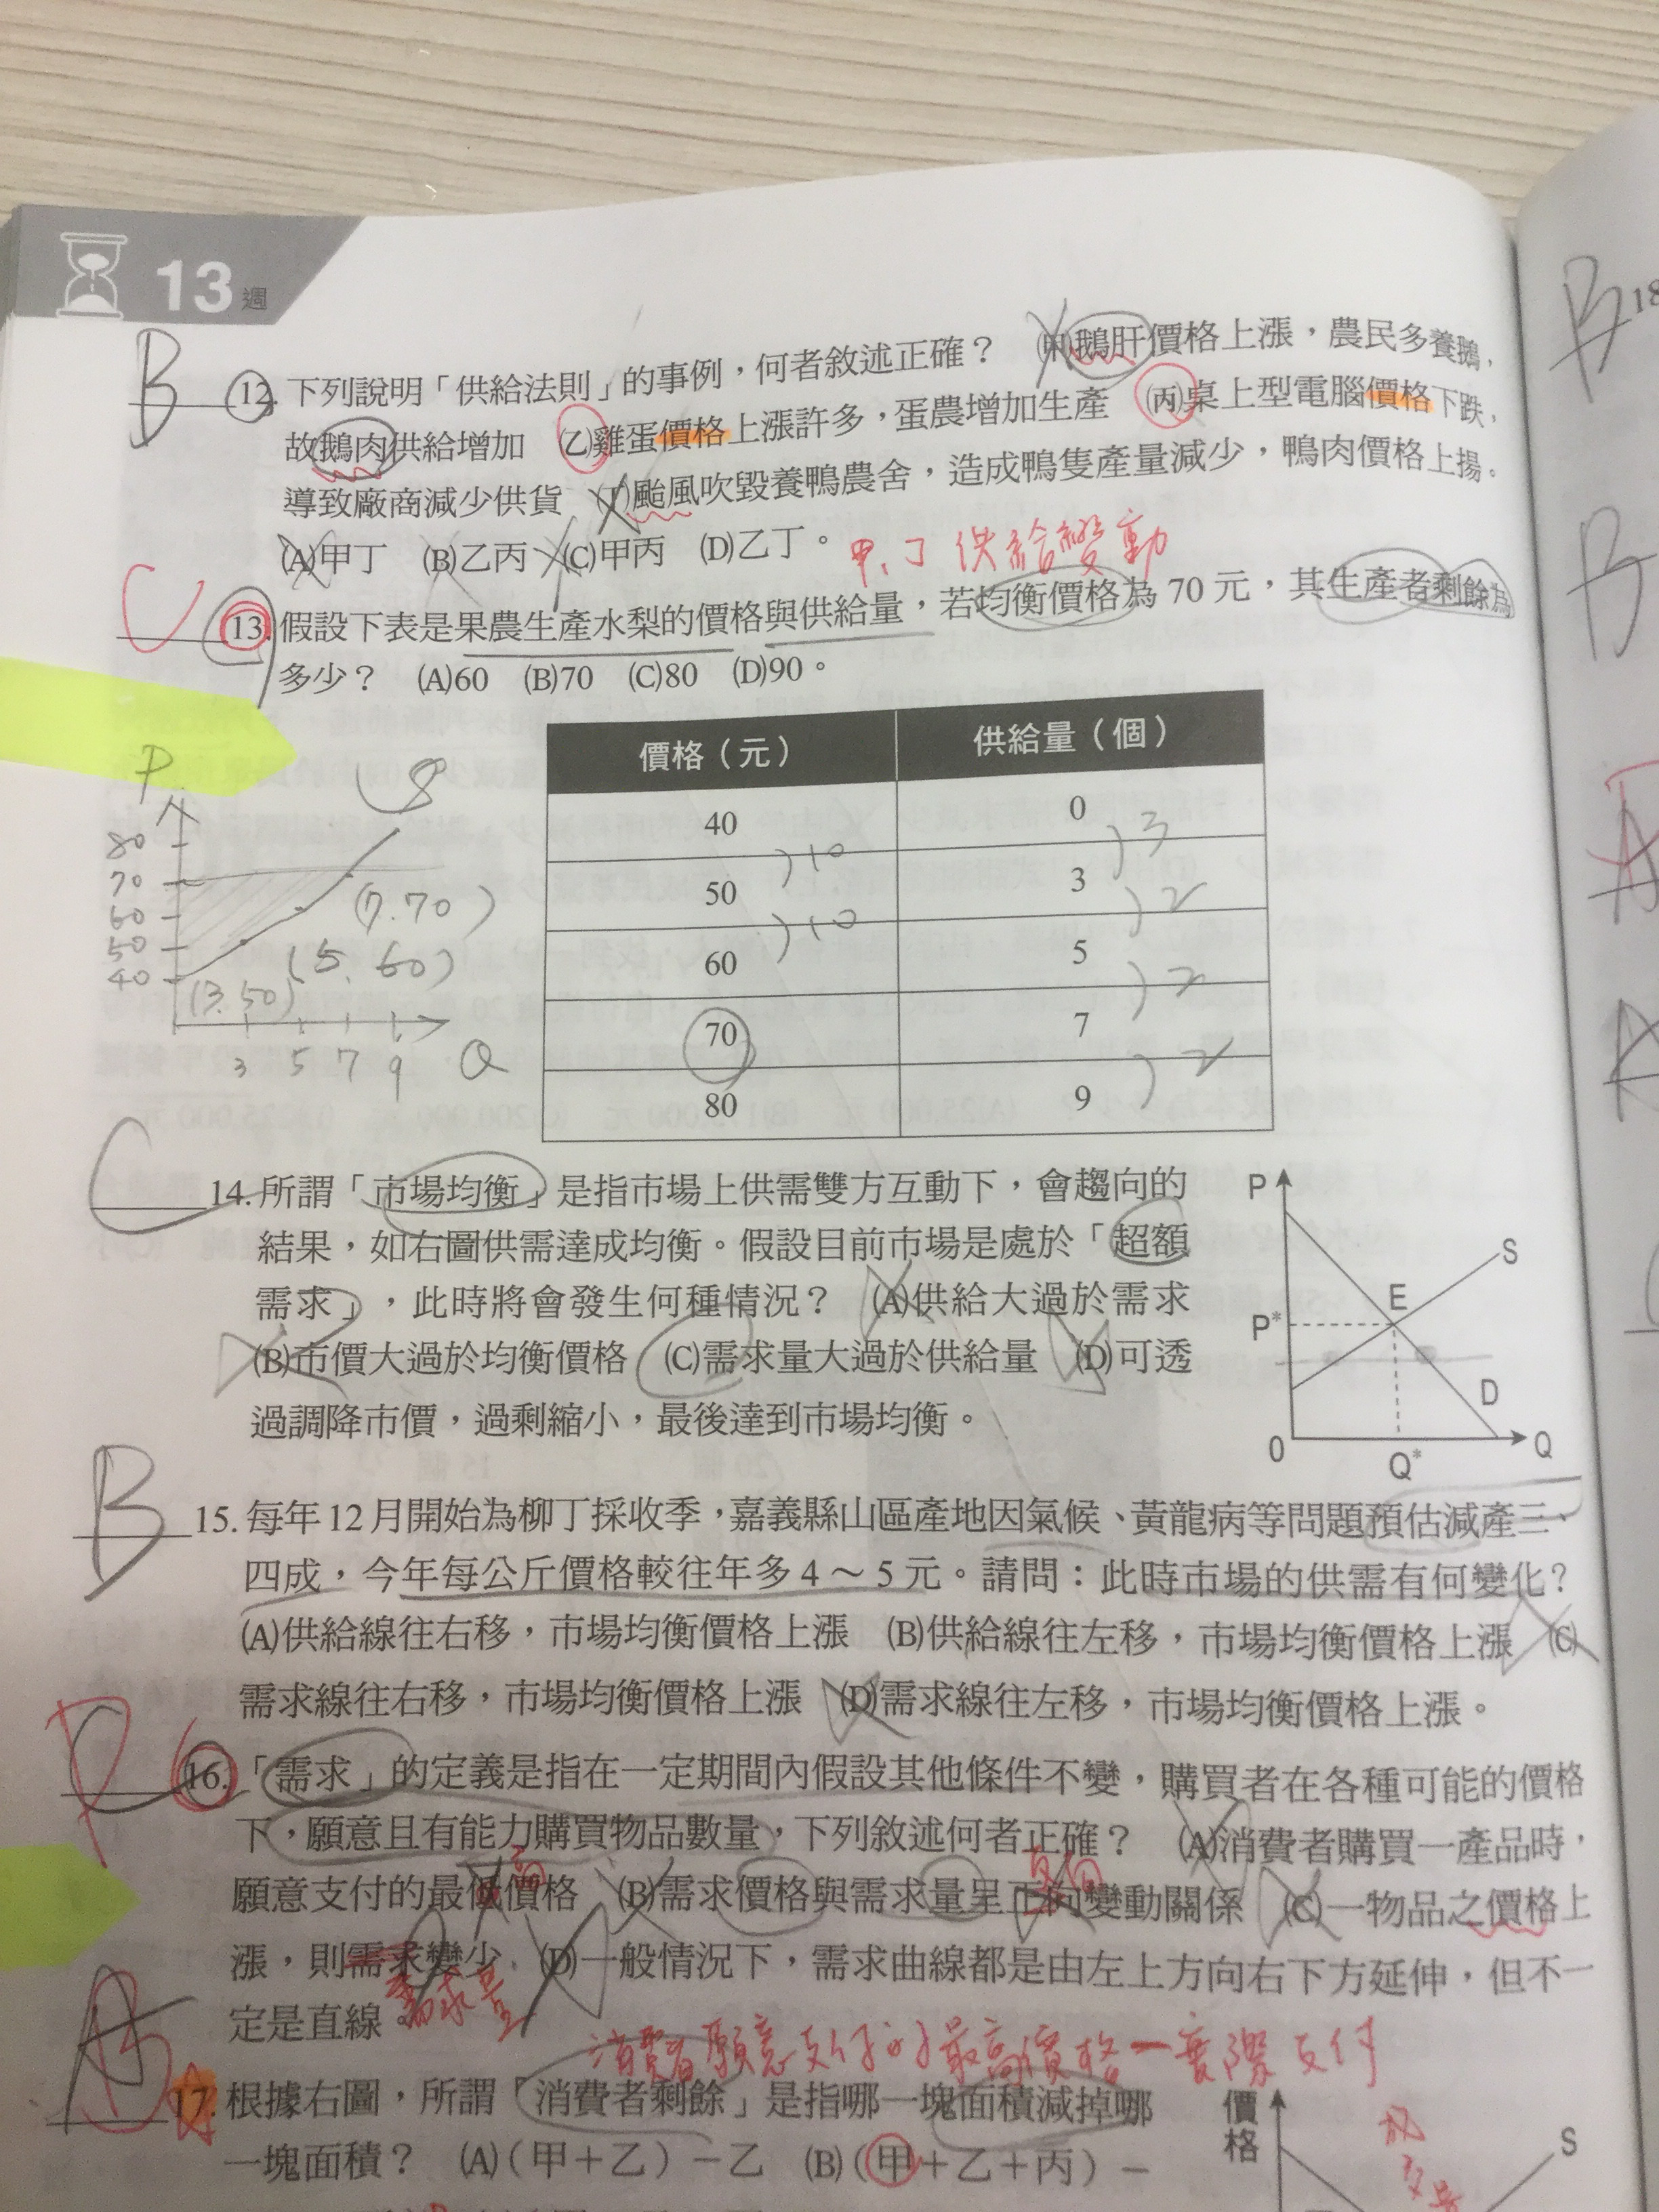 13 週
B 12. 下列說明「供給法則」的事例，何者敘述正確？ (甲)鵝肝價格上漲，農民多養鵝，
故鵝肉供給增加 (乙)雞蛋價格上漲許多，蛋農增加生產 (丙)桌上型電腦價格下跌，
導致廠商減少供貨 (丁)颱風吹毀養鴨農舍，造成鴨隻產量減少，鴨肉價格上揚。
(A)甲丁 (B)乙丙 (C)甲丙 (D)乙丁。 甲、丁 供給變動
C 13. 假設下表是果農生產水梨的價格與供給量，若均衡價格為 70 元，其生產者剩餘為
多少？ (A)60 (B)70 (C)80 (D)90。
價格（元） 供給量（個）
40 0
50 3
60 5
70 7
80 9
)10 )3
)10 )2
)2
)2
P
S
80
70
60
50
40
(7.70)
(5.60)
(3.50)
3 5 7 9 Q
C 14. 所謂「市場均衡」是指市場上供需雙方互動下，會趨向的
結果，如右圖供需達成均衡。假設目前市場是處於「超額
需求」，此時將會發生何種情況？ (A)供給大過於需求
(B)市價大過於均衡價格 (C)需求量大過於供給量 (D)可透
過調降市價，過剩縮小，最後達到市場均衡。
P
S
E
P*
D
0 Q* Q
B 15. 每年 12 月開始為柳丁採收季，嘉義縣山區產地因氣候、黃龍病等問題預估減產三、
四成，今年每公斤價格較往年多 4～5 元。請問：此時市場的供需有何變化？
(A)供給線往右移，市場均衡價格上漲 (B)供給線往左移，市場均衡價格上漲 (C)
需求線往右移，市場均衡價格上漲 (D)需求線往左移，市場均衡價格上漲。
16. 「需求」的定義是指在一定期間內假設其他條件不變，購買者在各種可能的價格
下，願意且有能力購買物品數量，下列敘述何者正確？ (A)消費者購買一產品時，
願意支付的最低價格 (B)需求價格與需求量呈正向變動關係 (C)一物品之價格上
漲，則需求變少 (D)一般情況下，需求曲線都是由左上方向右下方延伸，但不一
定是直線。 需求量
消費者願意支付的最高價格－實際支付
17. 根據右圖，所謂「消費者剩餘」是指哪一塊面積減掉哪
一塊面積？ (A)（甲＋乙）－乙 (B)（甲＋乙＋丙）－
價格
S
B 18
B
A